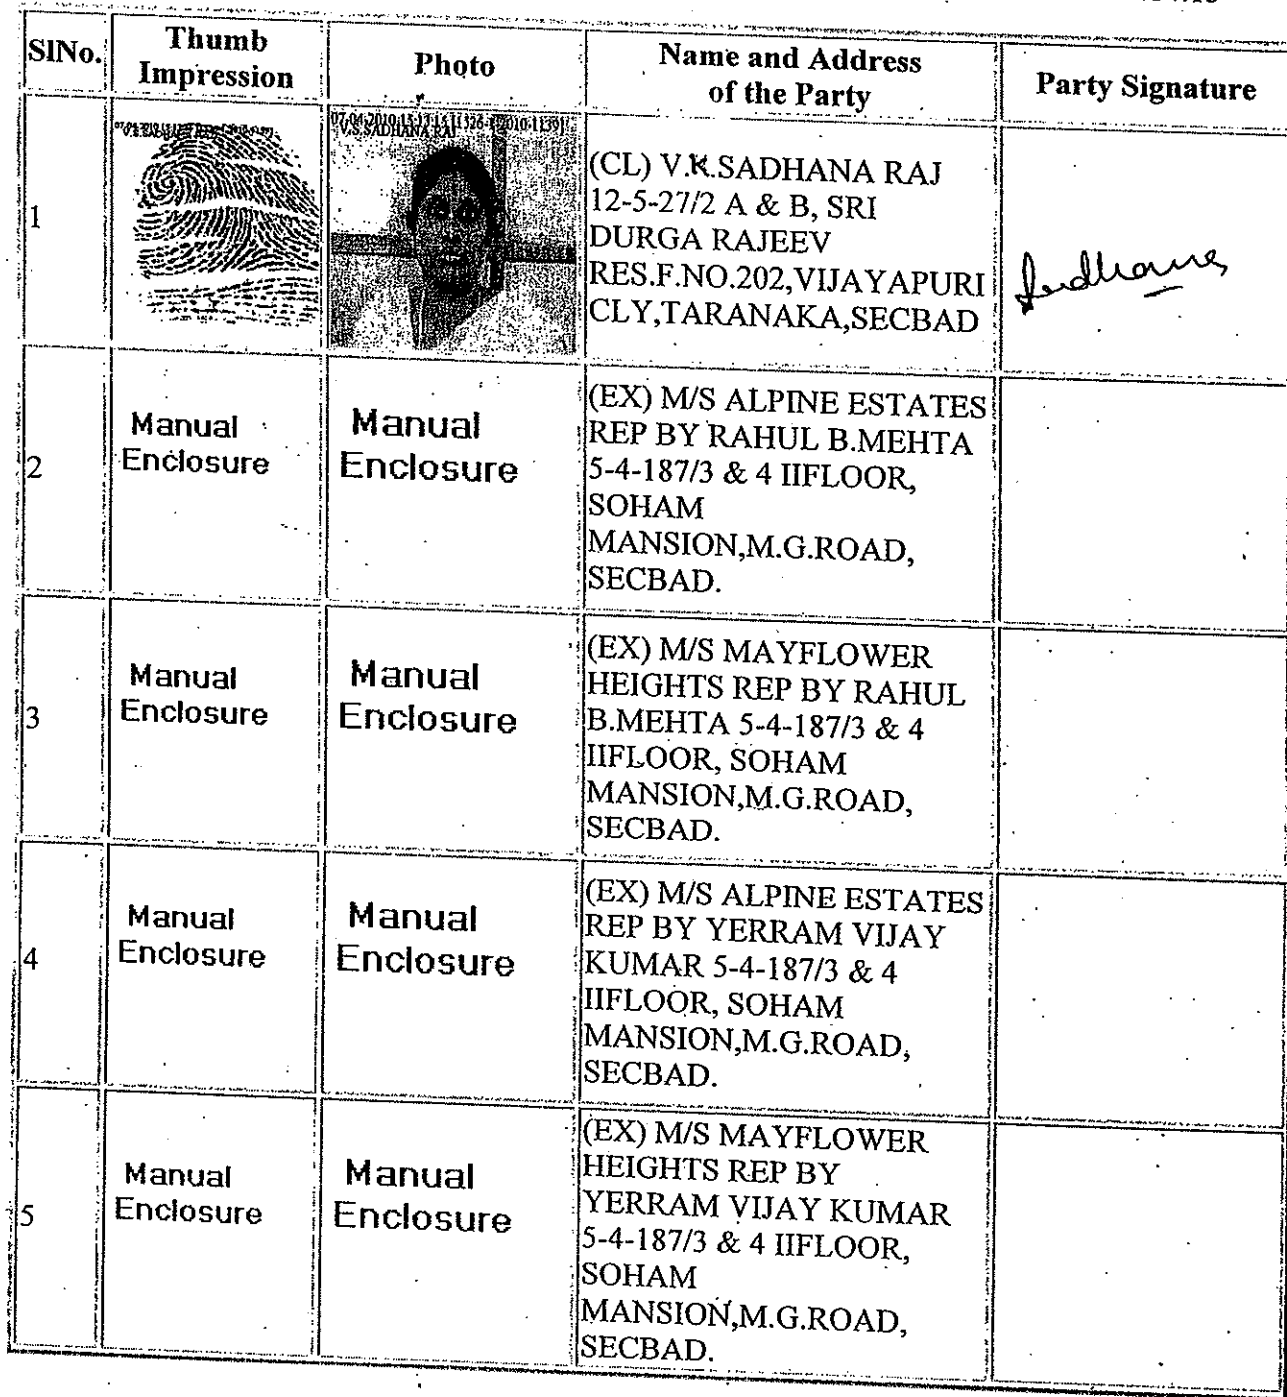 SlNo.
Thumb
Impression
Photo
Name and Address
of the Party
Party Signature
1
V.S.SADHANA RAJ
(CL) V.K.SADHANA RAJ
12-5-27/2 A & B, SRI
DURGA RAJEEV
RES.F.NO.202,VIJAYAPURI
CLY,TARANAKA,SECBAD
Sadhana
2
Manual
Enclosure
Manual
Enclosure
(EX) M/S ALPINE ESTATES
REP BY RAHUL B.MEHTA
5-4-187/3 & 4 IIFLOOR,
SOHAM
MANSION,M.G.ROAD,
SECBAD.
3
Manual
Enclosure
Manual
Enclosure
(EX) M/S MAYFLOWER
HEIGHTS REP BY RAHUL
B.MEHTA 5-4-187/3 & 4
IIFLOOR, SOHAM
MANSION,M.G.ROAD,
SECBAD.
4
Manual
Enclosure
Manual
Enclosure
(EX) M/S ALPINE ESTATES
REP BY YERRAM VIJAY
KUMAR 5-4-187/3 & 4
IIFLOOR, SOHAM
MANSION,M.G.ROAD,
SECBAD.
5
Manual
Enclosure
Manual
Enclosure
(EX) M/S MAYFLOWER
HEIGHTS REP BY
YERRAM VIJAY KUMAR
5-4-187/3 & 4 IIFLOOR,
SOHAM
MANSION,M.G.ROAD,
SECBAD.